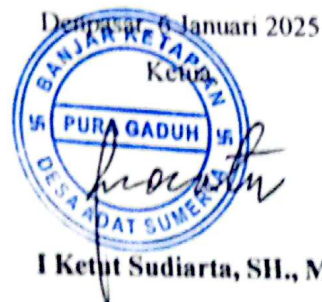 Denpasar, 6 Januari 2025
Ketua
BANJAR KETAPIAN
PURA GADUH
DESA ADAT SUMERTA
I Ketut Sudiarta, SH., M